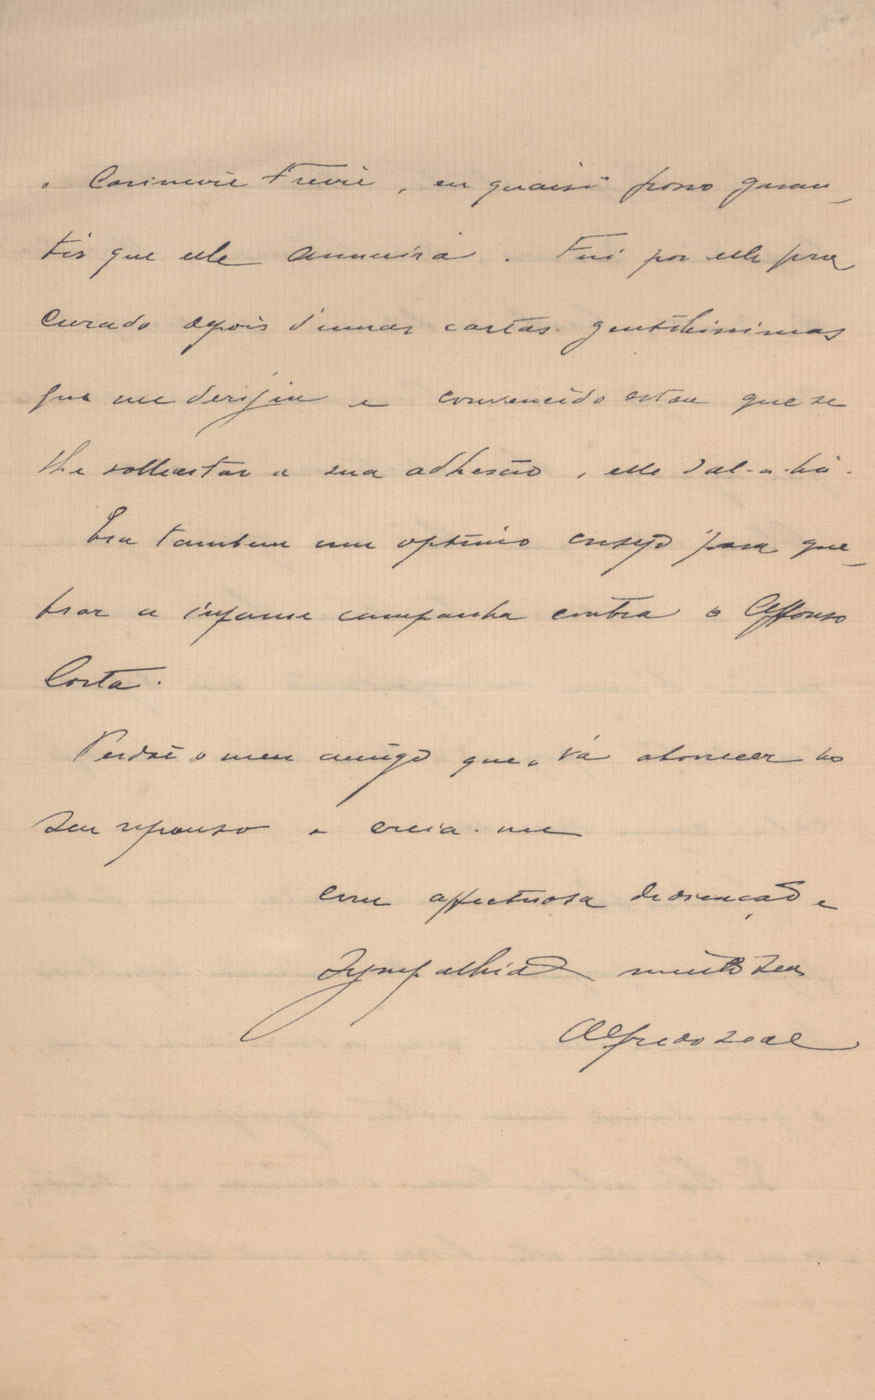 o Casimiro Freire, eu quaisi posso garan-
tir que elle annuirá. Fui por elle pro
curado depois d'umas cartas gentilissimas
que me derijiu e convencido estou que se
lhe sollicitar a sua adhesão, elle dal-a-há.
Era tambem um optimo ensejo para que-
brar a infame campanha contra o Affonso
Costa.
Perdoe o meu amigo que o vá aborrecer no
seu repouso e creia-me
com affectuosa dedicação e
sympathia muito seu
Alfredo Leal